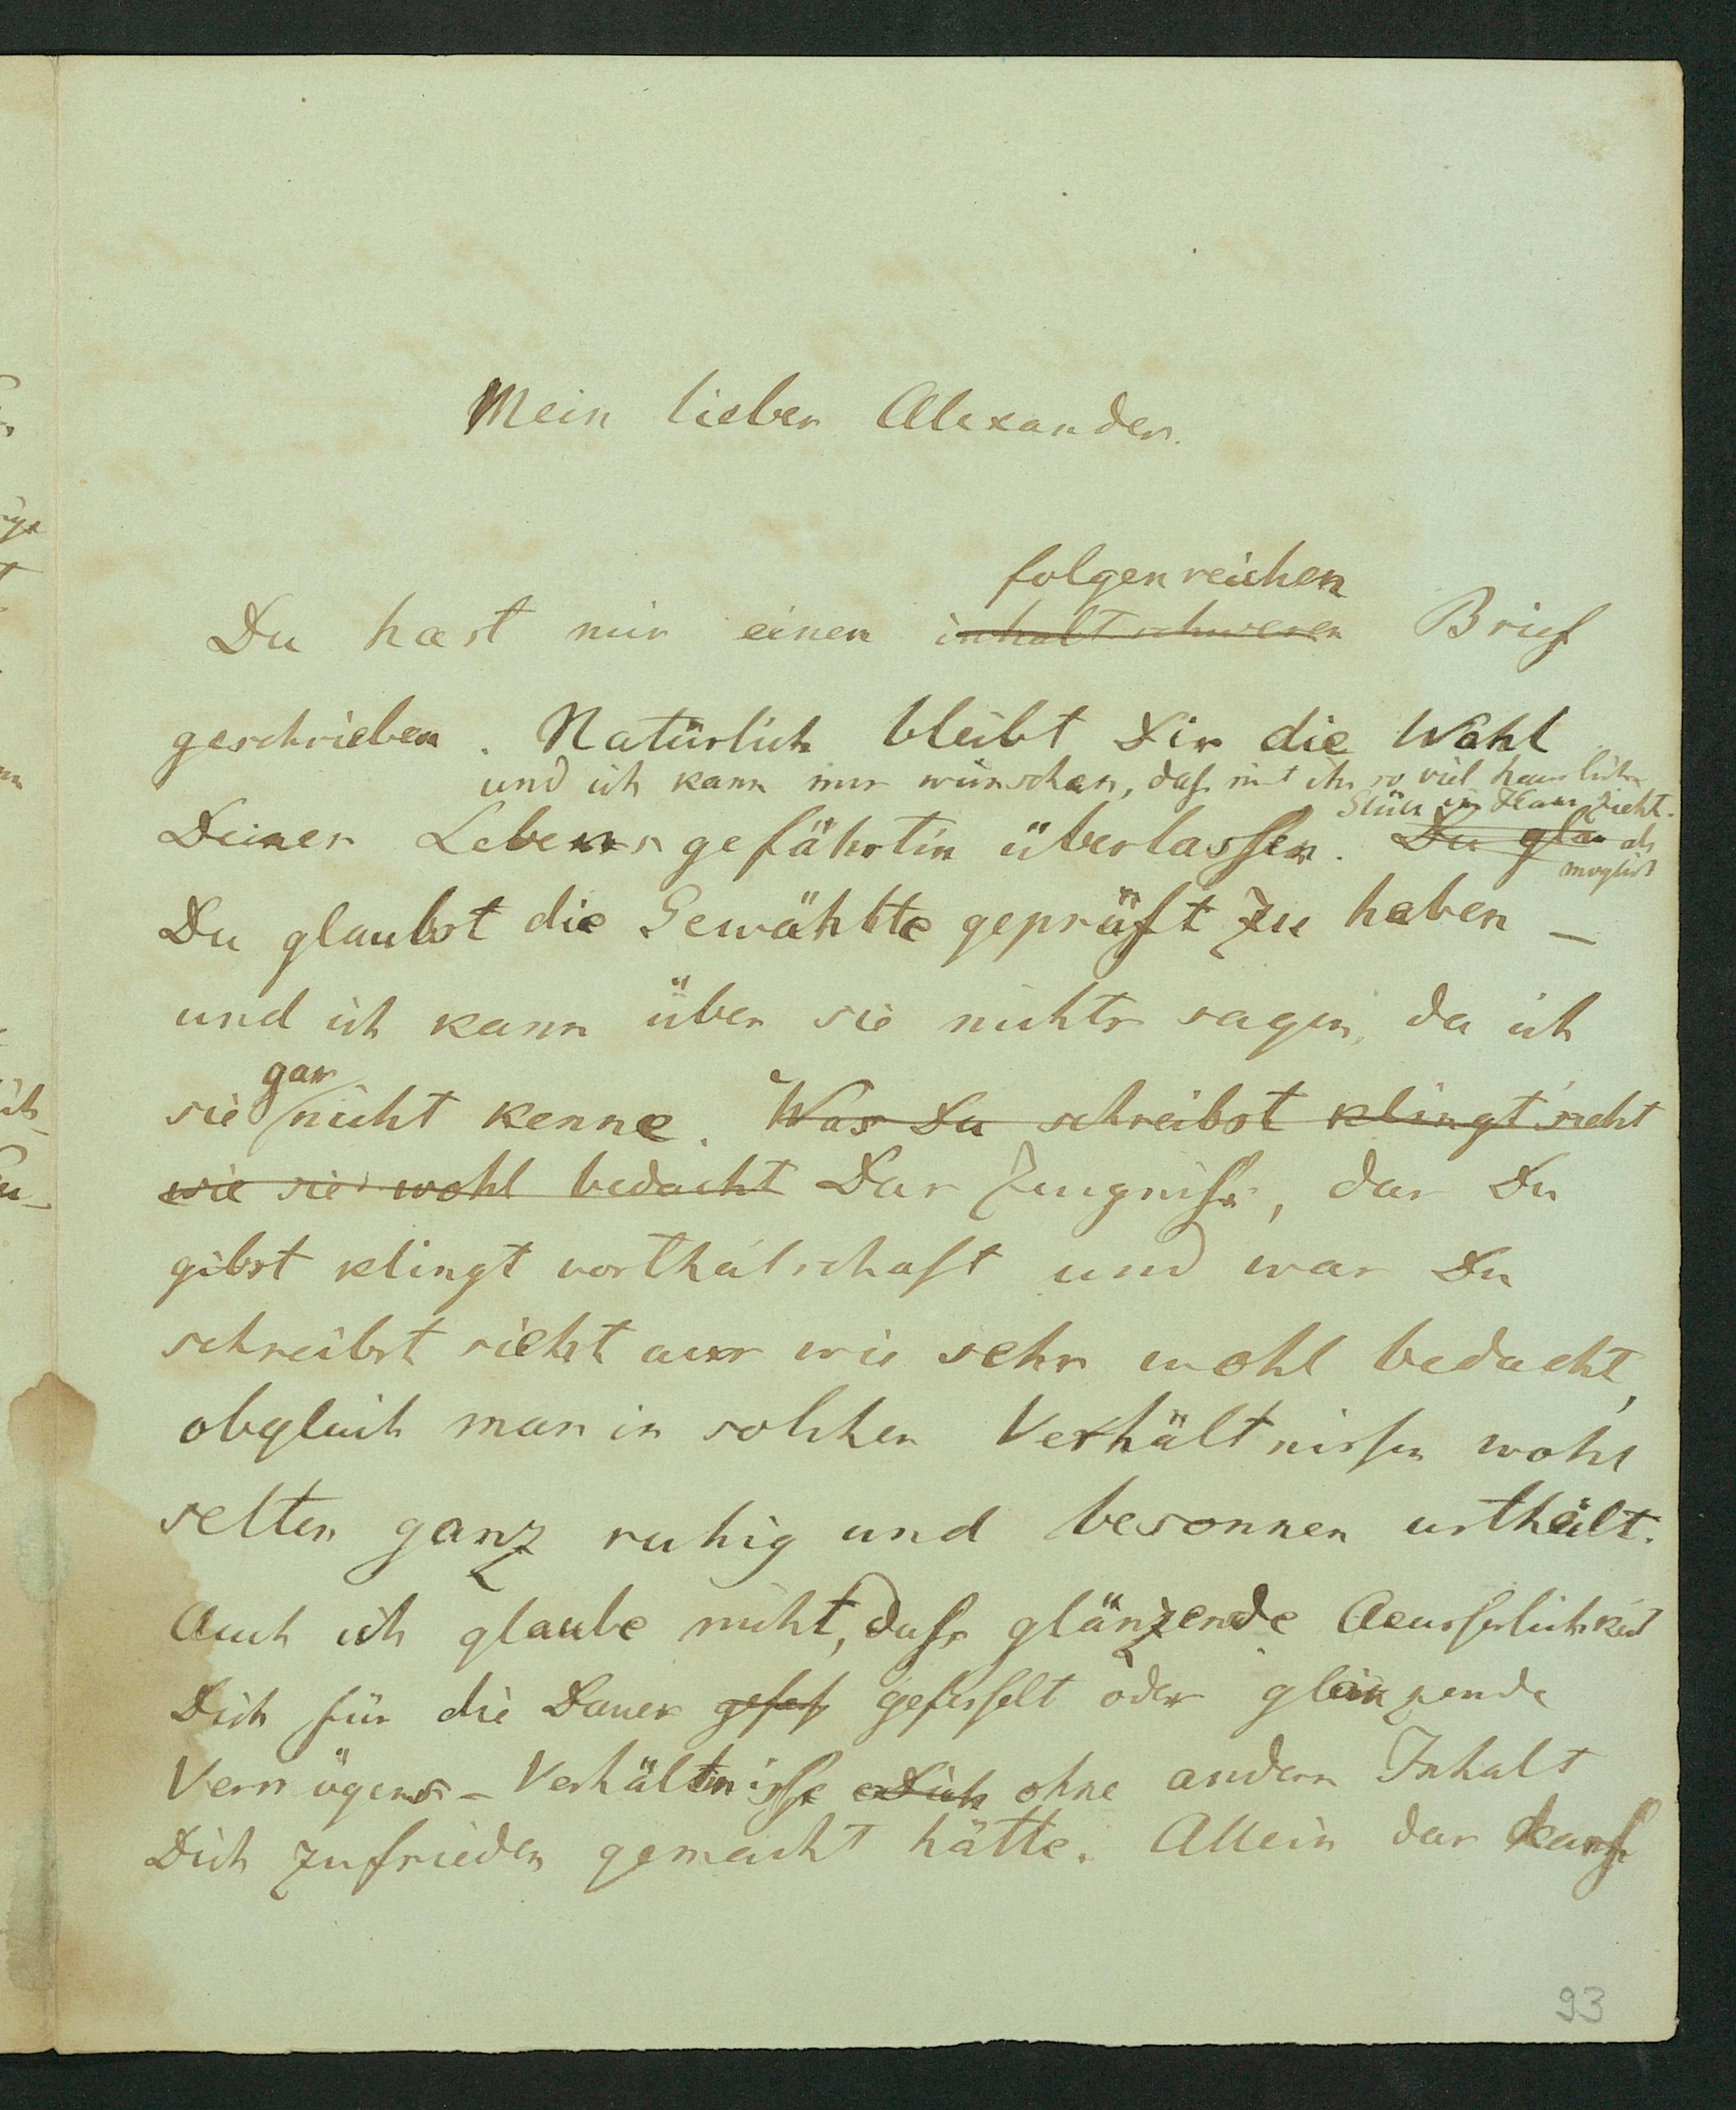 Mein lieber Alexander.
folgenreichen
Du hast mir einen inhaltschweren Brief
geschrieben. Natürlich bleibt Dir die Wahl
und ich kann nur wünschen, daß mit ihr so viel häusliches
Glück ins Haus zieht.
Deiner Lebensgefährtin überlassen. Du glau als
möglich
Du glaubst die Gewählte geprüft zu haben –
und ich kann über sie nichts sagen, da ich
gar
sie nicht kenne. Was Du schreibst klingt sieht
wie sie wohl bedacht Das Zeugniss, das Du
gibst klingt vortheilschaft und was Du
schreibst sieht aus wie sehr wohl bedacht,
obgleich man in solchen Verhältnissen wohl
selten ganz ruhig und besonnen urtheilt.
Auch ich glaube nicht, dass glänzende Aeusserlichkeit
Dich für die Dauer gefes gefesselt oder glänzende
Vermögens-Verhältnisse Dich ohne andern Inhalt
Dich zufrieden gemacht hätte. Allein das
93